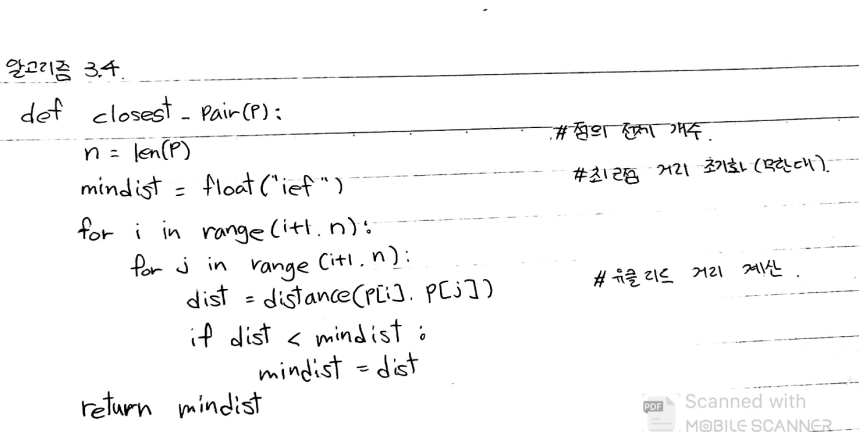 알고리즘 3.4.
def closest_Pair(P):
n = len(P) #점의 전체 개수.
mindist = float("ief") #최근접 거리 초기화 (무한대).
for i in range(i+1, n):
for j in range (i+1, n):
dist = distance(P[i], P[j]) #유클리드 거리 계산.
if dist < mindist :
mindist = dist
return mindist
PDF Scanned with
MOBILE SCANNER